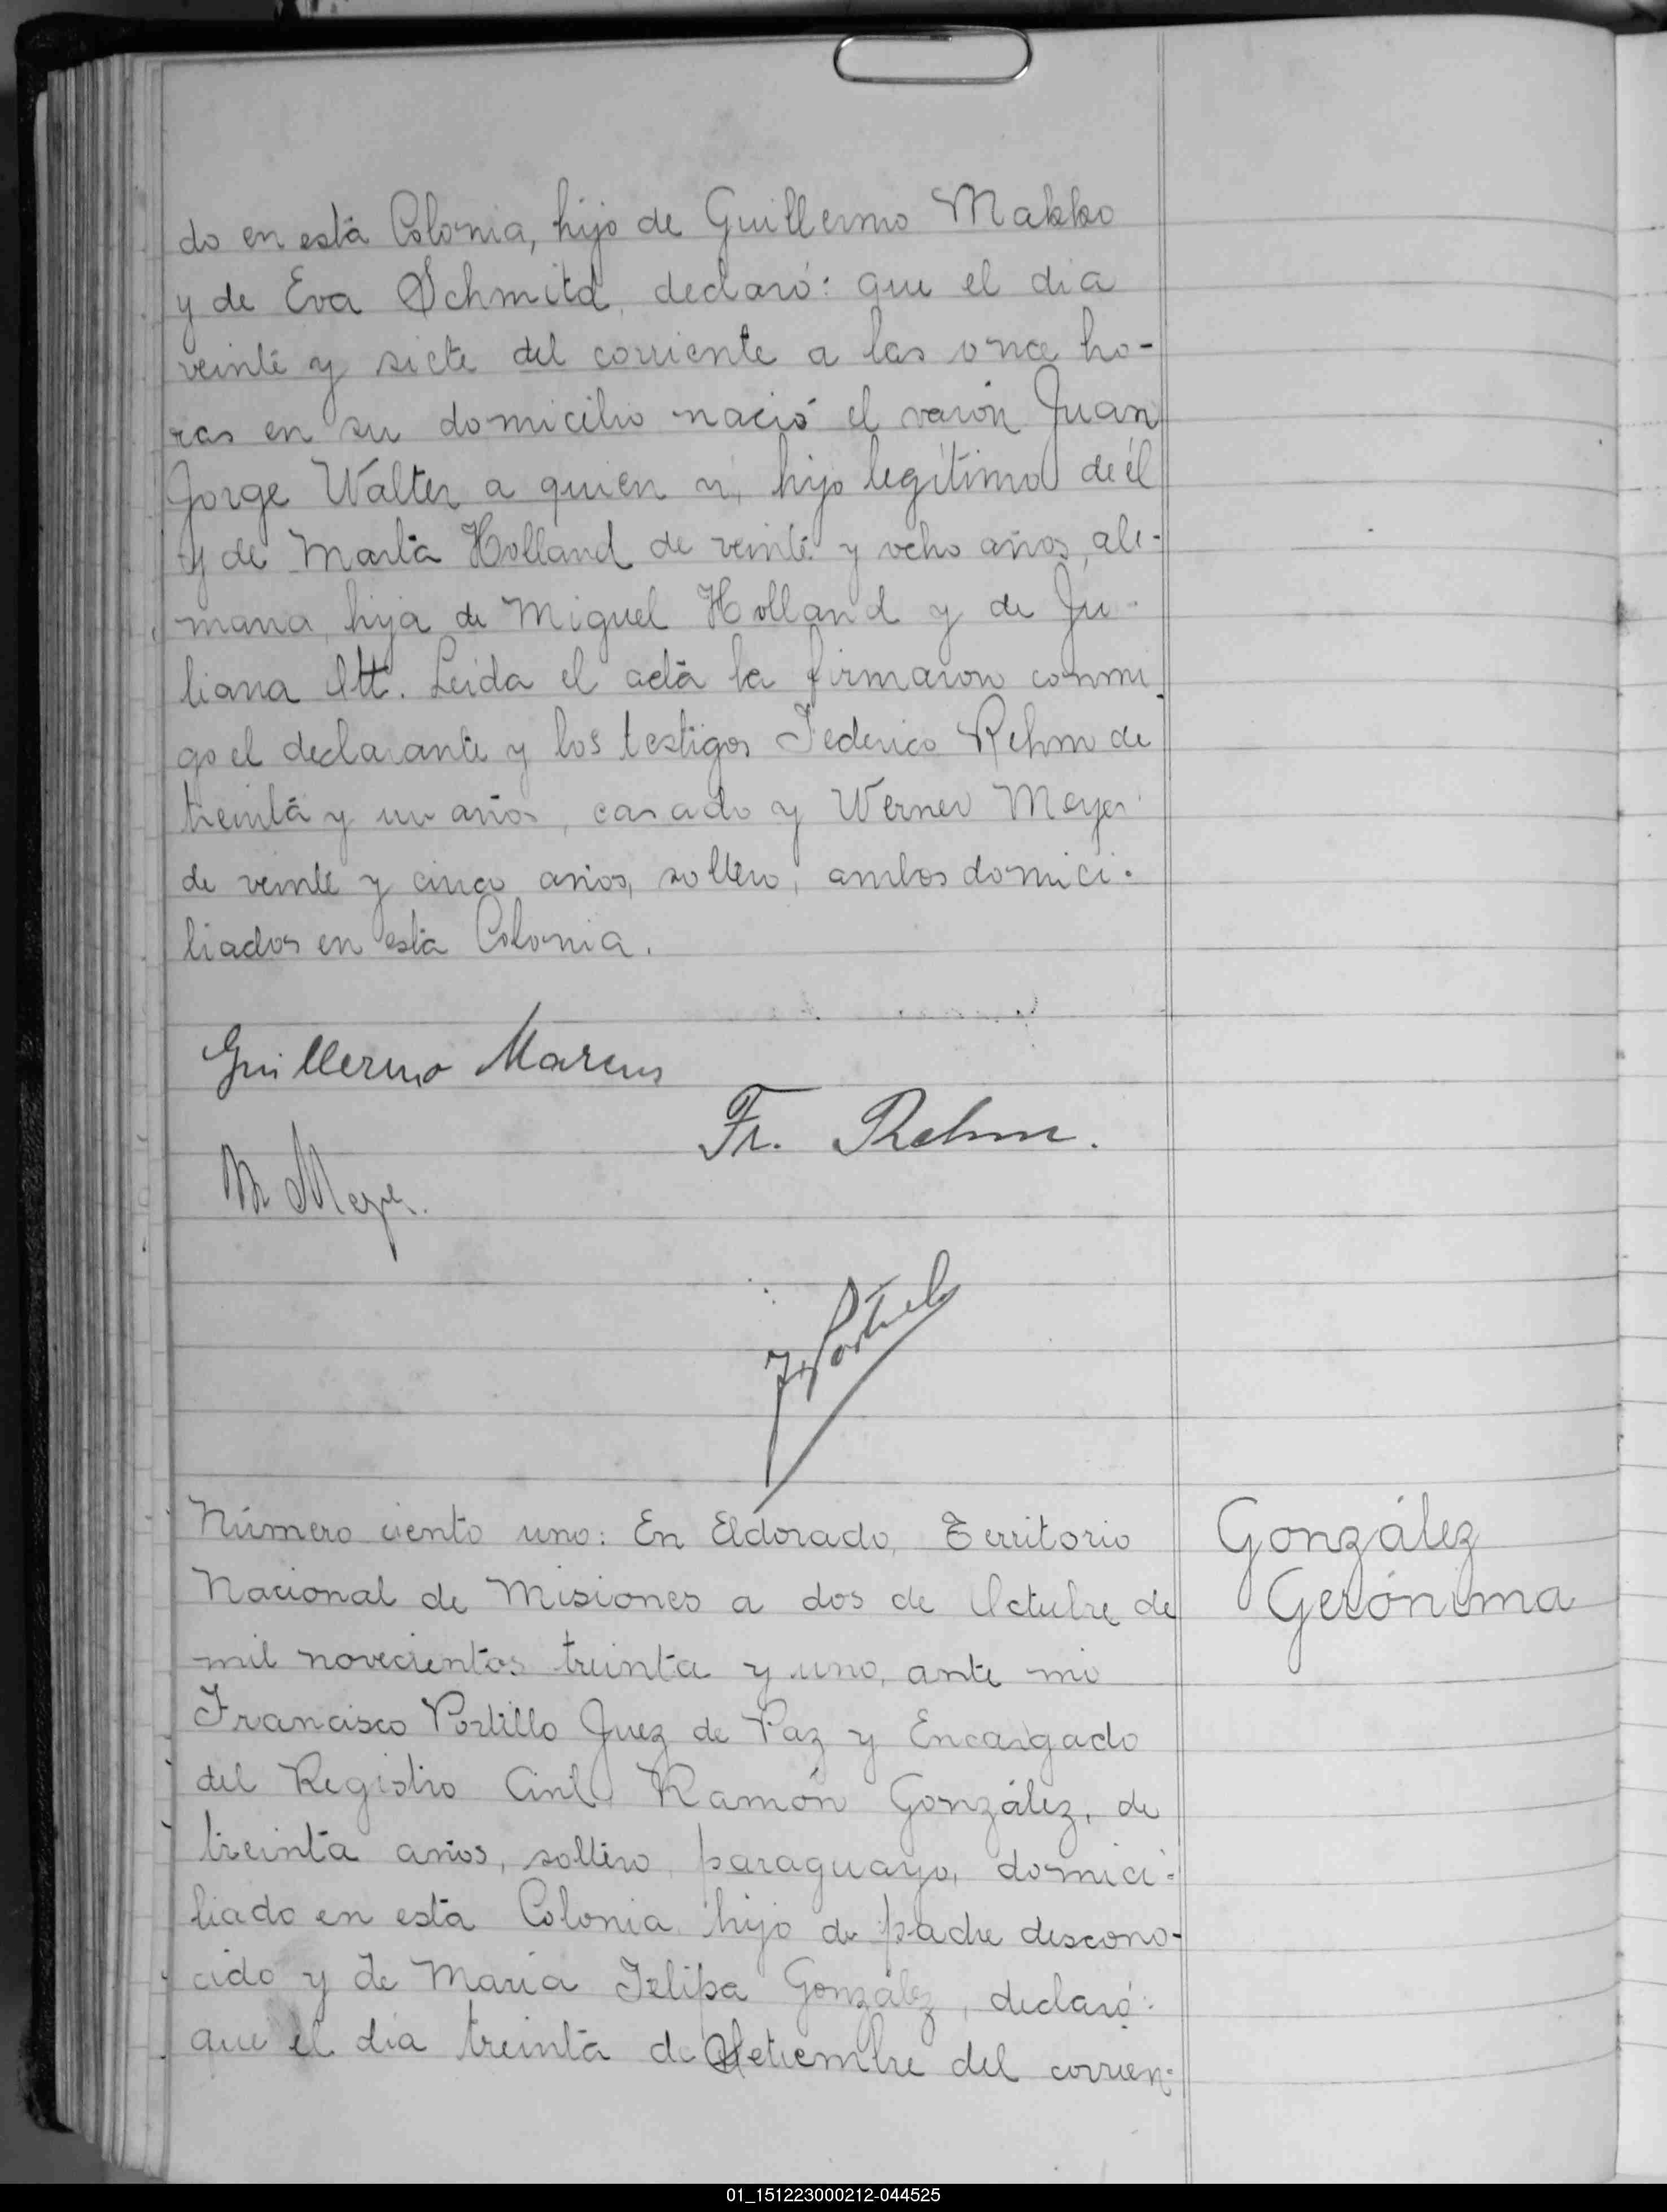 do en está Colonia, hijo de Guillermo Makko
y de Eva Schmitd, declaró: que el dia
veinte y siete del corriente a las once ho-
ras en su domicilio nació el varón Juan
Jorge Walter a quien vi, hijo legítimo de él
y de Marta Holland de veinte y ocho años, ale-
mana, hija de Miguel Holland y de Ju-
liana Ott. Leida el acta la firmaron conmi-
go el declarante y los testigos Federico Rehm de
treinta y un años, casado y Werner Meyer
de veinte y cinco años, soltero, ambos domici-
liados en esta Colonia.
Guillermo Marcus
Fr. Rehm.
W Meyer.
Número ciento uno: En Eldorado, Territorio
Nacional de Misiones a dos de Octubre de
mil novecientos treinta y uno, ante mi
Francisco Portillo Juez de Paz y Encargado
del Registro Civil, Ramón González, de
treinta años, soltero, paraguayo, domici-
liado en esta Colonia hijo de padre descono-
cido y de María Felipa González, declaró:
que el día treinta de Setiembre del corrien-
González
Gerónima
01_151223000212-044525